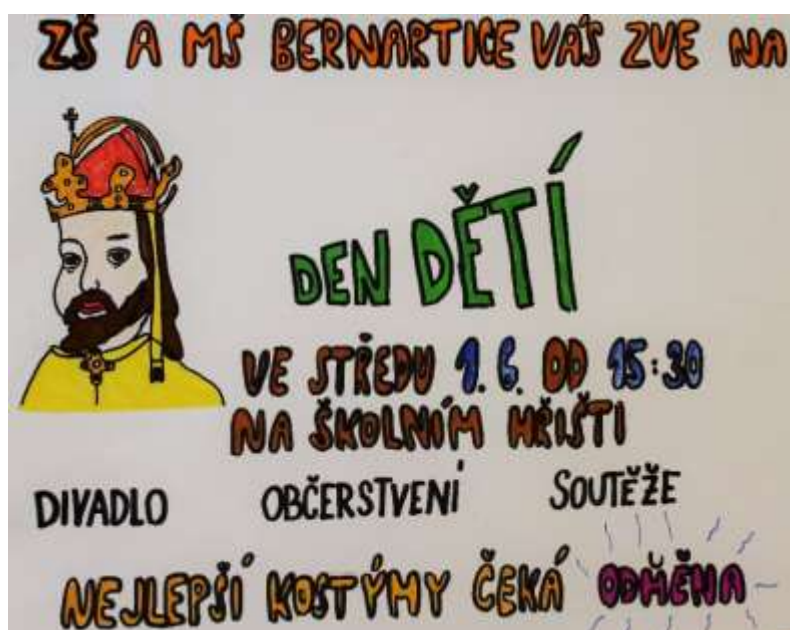 ZŠ A MŠ BERNARTICE VÁS ZVE NA
DEN DĚTÍ
VE STŘEDU 1. 6. OD 15:30
NA ŠKOLNÍM HŘIŠTI
DIVADLO OBČERSTVENÍ SOUTĚŽE
NEJLEPŠÍ KOSTÝMY ČEKÁ ODMĚNA